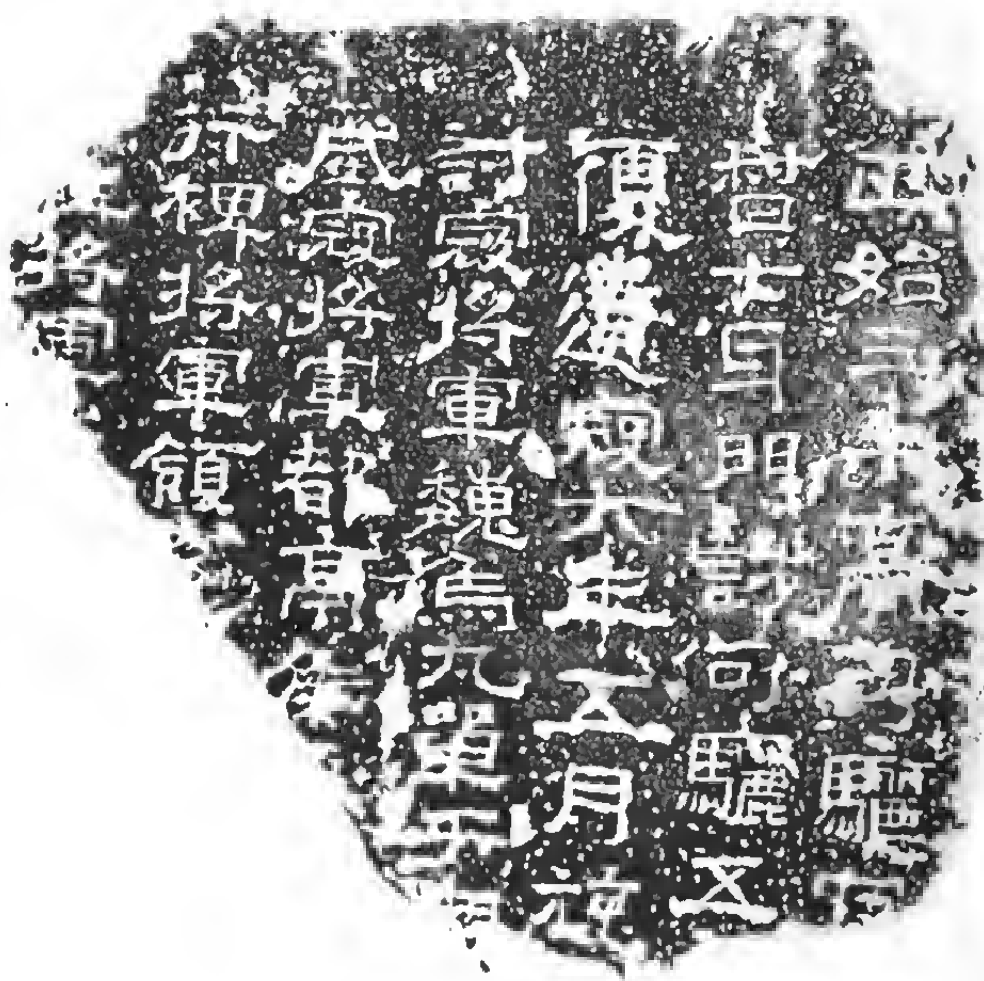 正始三年高句驪
督七牙門討句驪五
復遣寇六年五月旋
討寇將軍魏烏丸單于
威寇將軍都亭侯
行裨將軍領
將軍